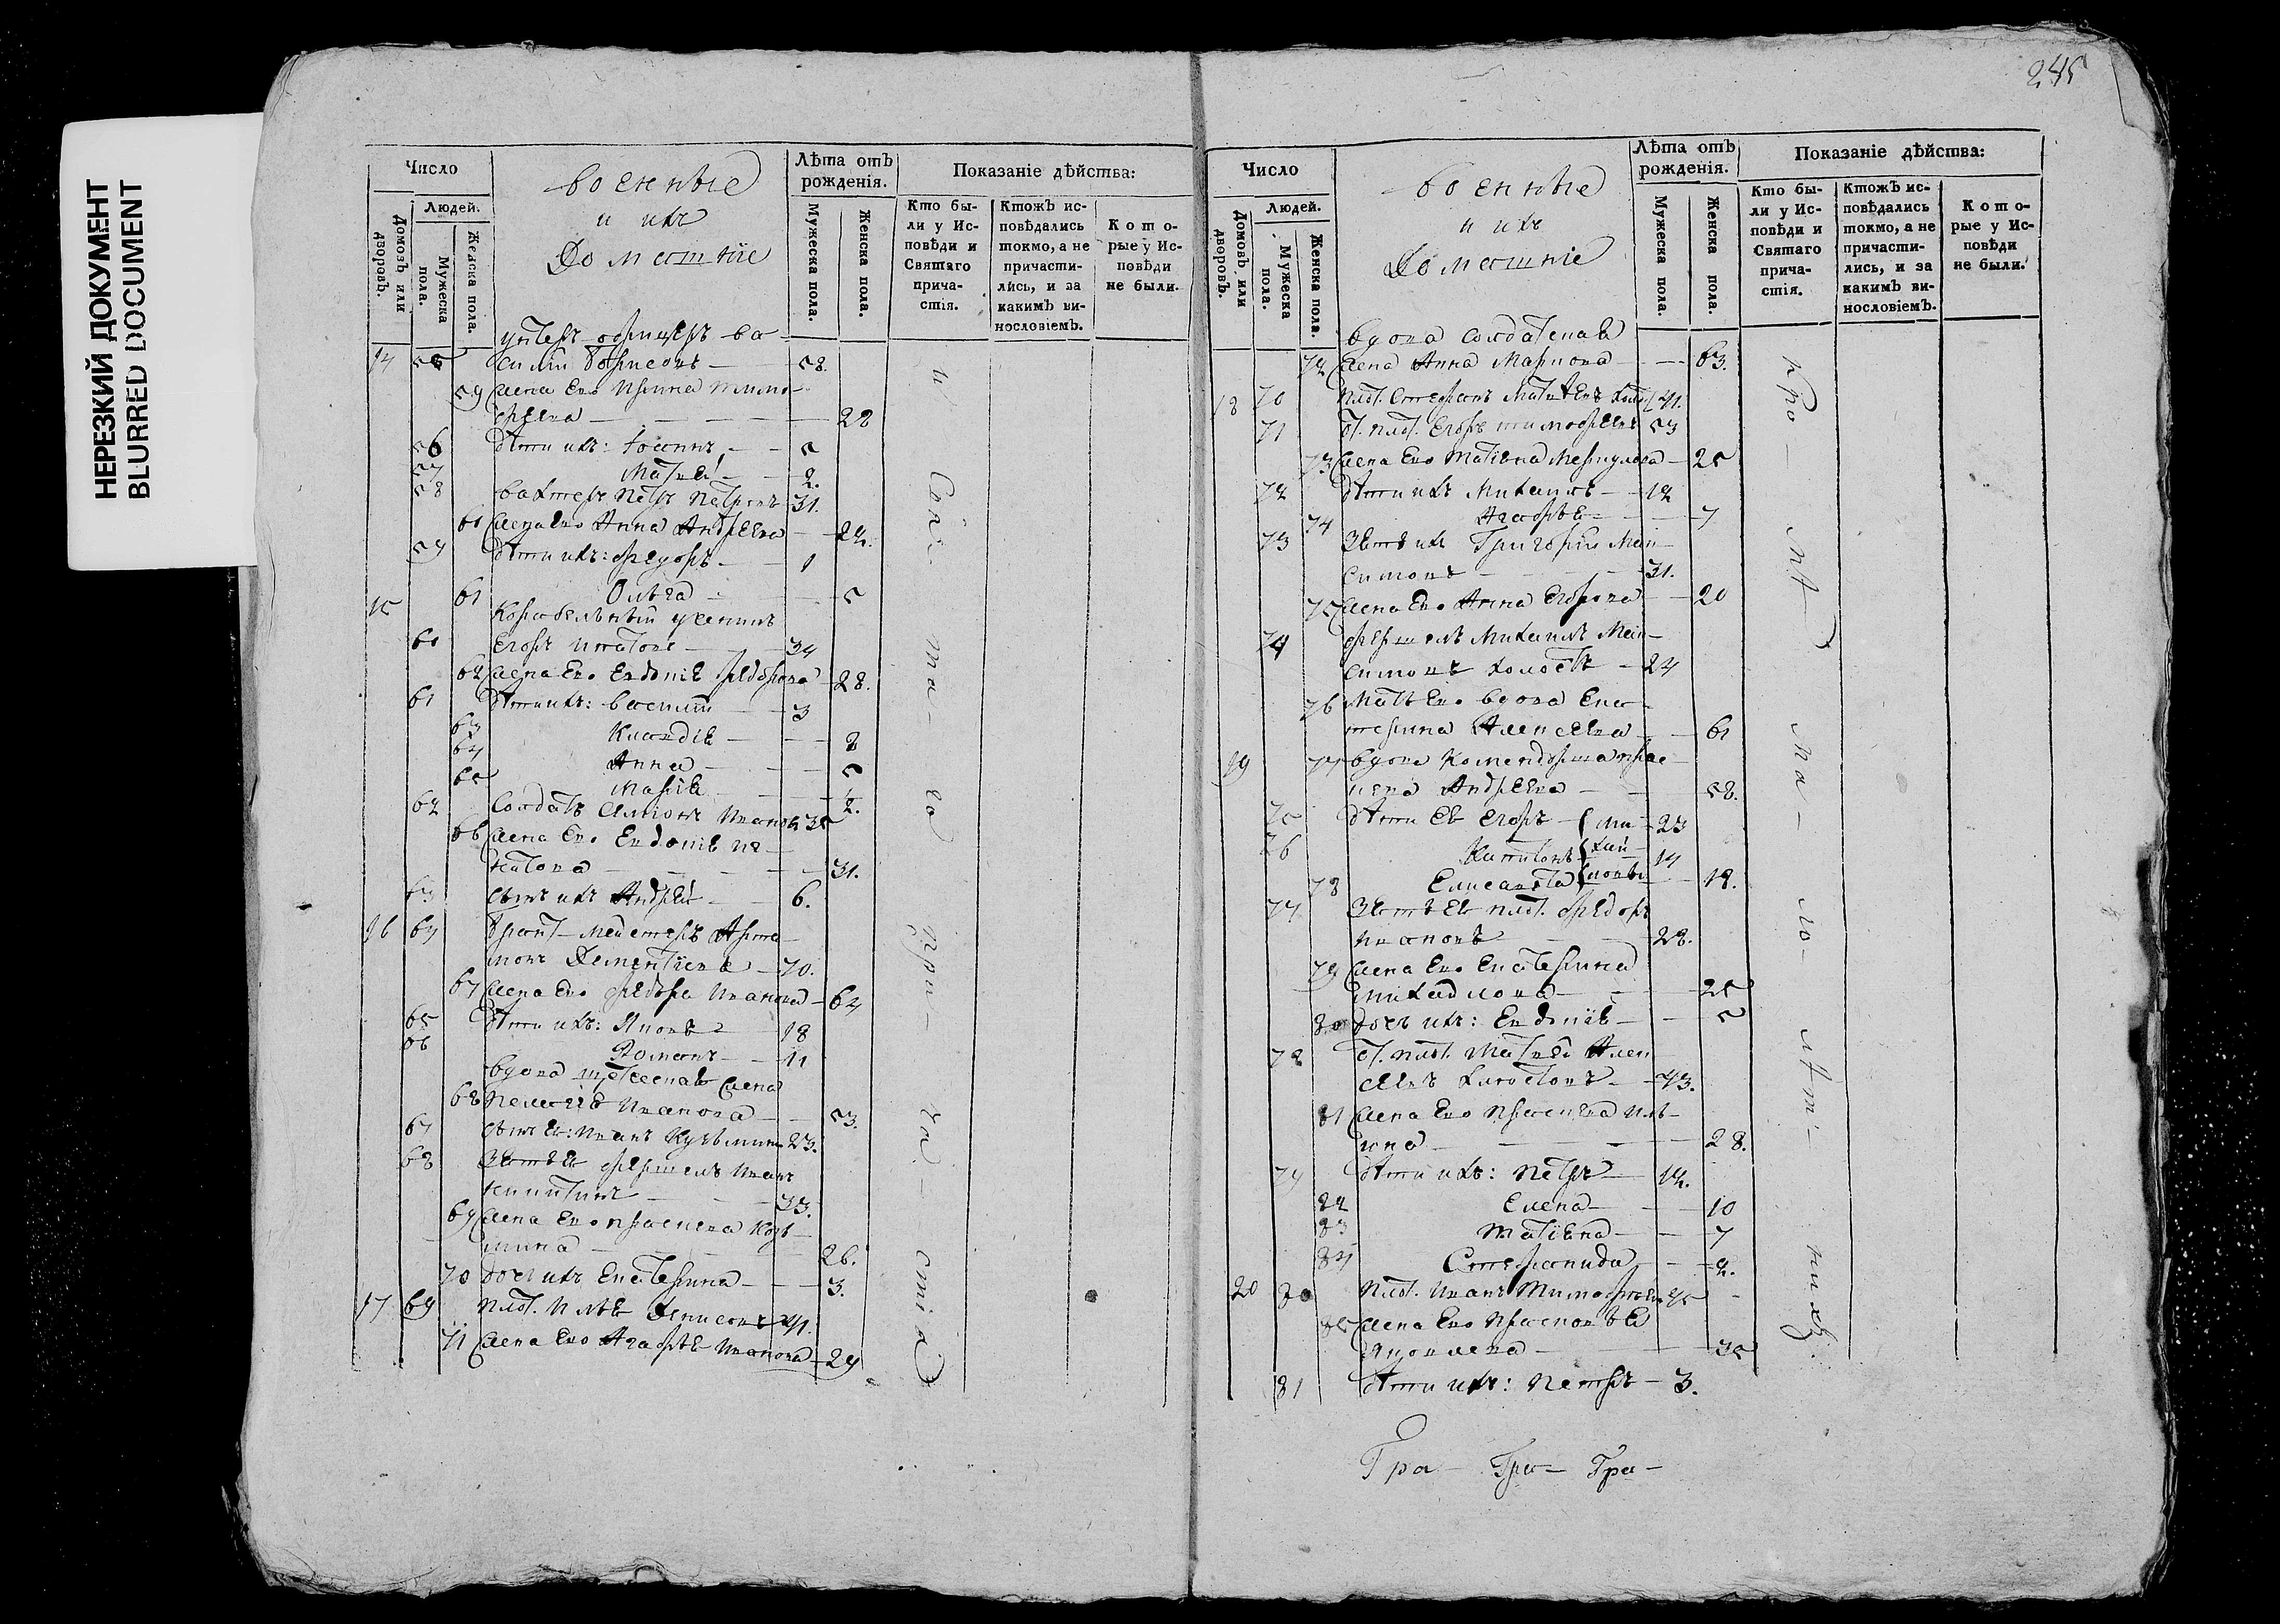 НЕРЕЗКИЙ ДОКУМЕНТ
BLURRED DOCUMENT
245
Число
Людей.
Домовъ или дворовъ.
Мужеска пола.
Женска пола.
военные
и ихъ
Домашніе
Лѣта отъ рожденія.
Мужеска пола.
Женска пола.
Показаніе дѣйства:
Кто были у Исповѣди и Святаго причастія.
Ктожъ исповѣдались токмо, а не причастились, и за какимъ винословіемъ.
Которые у Исповѣди не были.
унтеръ офицеръ Ва-
14 55 силій Борисовъ — 58.
59 жена Его Ирина Тимо-
фѣева — 28
56 дѣти ихъ: Іоаннъ — 5
57 Матвѣй — 2.
58 Вахтеръ Петръ Петровъ 31.
60 жена Его Анна Андрѣева — 22.
59 дѣти ихъ: Федоръ — 1
61 Ольга — 5
15 Корабельный ученикъ
60 Егоръ — 34
62 жена Его Евдокія Федорова — 28.
61 дѣти ихъ: Василій — 3
63 Клавдія — 8
64 Анна — 5
65 Марія — 2.
62 Солдатъ Иванов 35
66 жена Его Евдокія Иг-
натова — 31.
63 сынъ ихъ Андрѣй — 6.
16 64 Брантъ-мейстеръ Арта-
монъ Дементіевъ — 70.
67 жена Его Федора Иванова — 64
65 дѣти ихъ: Яковъ — 18
66 Романъ — 11
вдова жена
68 Пелагія Иванова — 53.
67 сынъ Ея: Иванъ Кузьминъ 23.
68 Зять Ея Иванъ
Никитинъ — 33.
69 жена Его Прасковья Козь-
мина — 26.
70 дочь ихъ Екатерина — 3.
17 69 плот. Илья Денисовъ 41.
71 жена Его Агафья Иванова — 29
и Свя- та- го При- ча- стія
Число
Людей.
Домовъ или дворовъ.
Мужеска пола.
Женска пола.
военные
и ихъ
Домашніе
Лѣта отъ рожденія.
Мужеска пола.
Женска пола.
Показаніе дѣйства:
Кто были у Исповѣди и Святаго причастія.
Ктожъ исповѣдались токмо, а не причастились, и за какимъ винословіемъ.
Которые у Исповѣди не были.
вдова солдатская
72 жена Анна Маркова — 63.
18 70 плот. Стефанъ Матвѣевъ 41.
71 плот. Егоръ Тимофѣевъ 53
73 жена Его Татіана — 25
72 дѣти ихъ Михаилъ — 12
74 Агафья — 7
73 Зять ихъ Григорій Мак-
симовъ — 31.
75 жена Его Анна Егорова — 20
74 Михаилъ Мак-
симовъ холостъ — 24
76 Мать Его вдова Ека-
терина Алексѣева — 61
19 77 вдова Прас-
ковья Андрѣева — 58.
75 дѣти Ея Егоръ — 23
76 Капитонъ — 14
78 Елисавета — 18.
77 Зять Ея плот. Федоръ
Ивановъ — 28.
79 жена Его Екатерина
Михайлова — 25
80 дочь ихъ: Евдокія — 5
78 плот. Матвѣй Алек-
сѣевъ — 43.
81 жена Его Прасковья Иль-
ина — 28.
79 дѣти ихъ: Петръ — 12.
82 Елена — 10
83 Татіана — 7
84 Стефанида — 2.
20 80 плот. Иванъ Тимофѣевъ 45
85 жена Его Прасковья
Яковлева — 35
81 дѣти ихъ: Петръ — 3.
кро- мѣ ма- ло- лѣт- нихъ.
Гра- Гра- Гра-